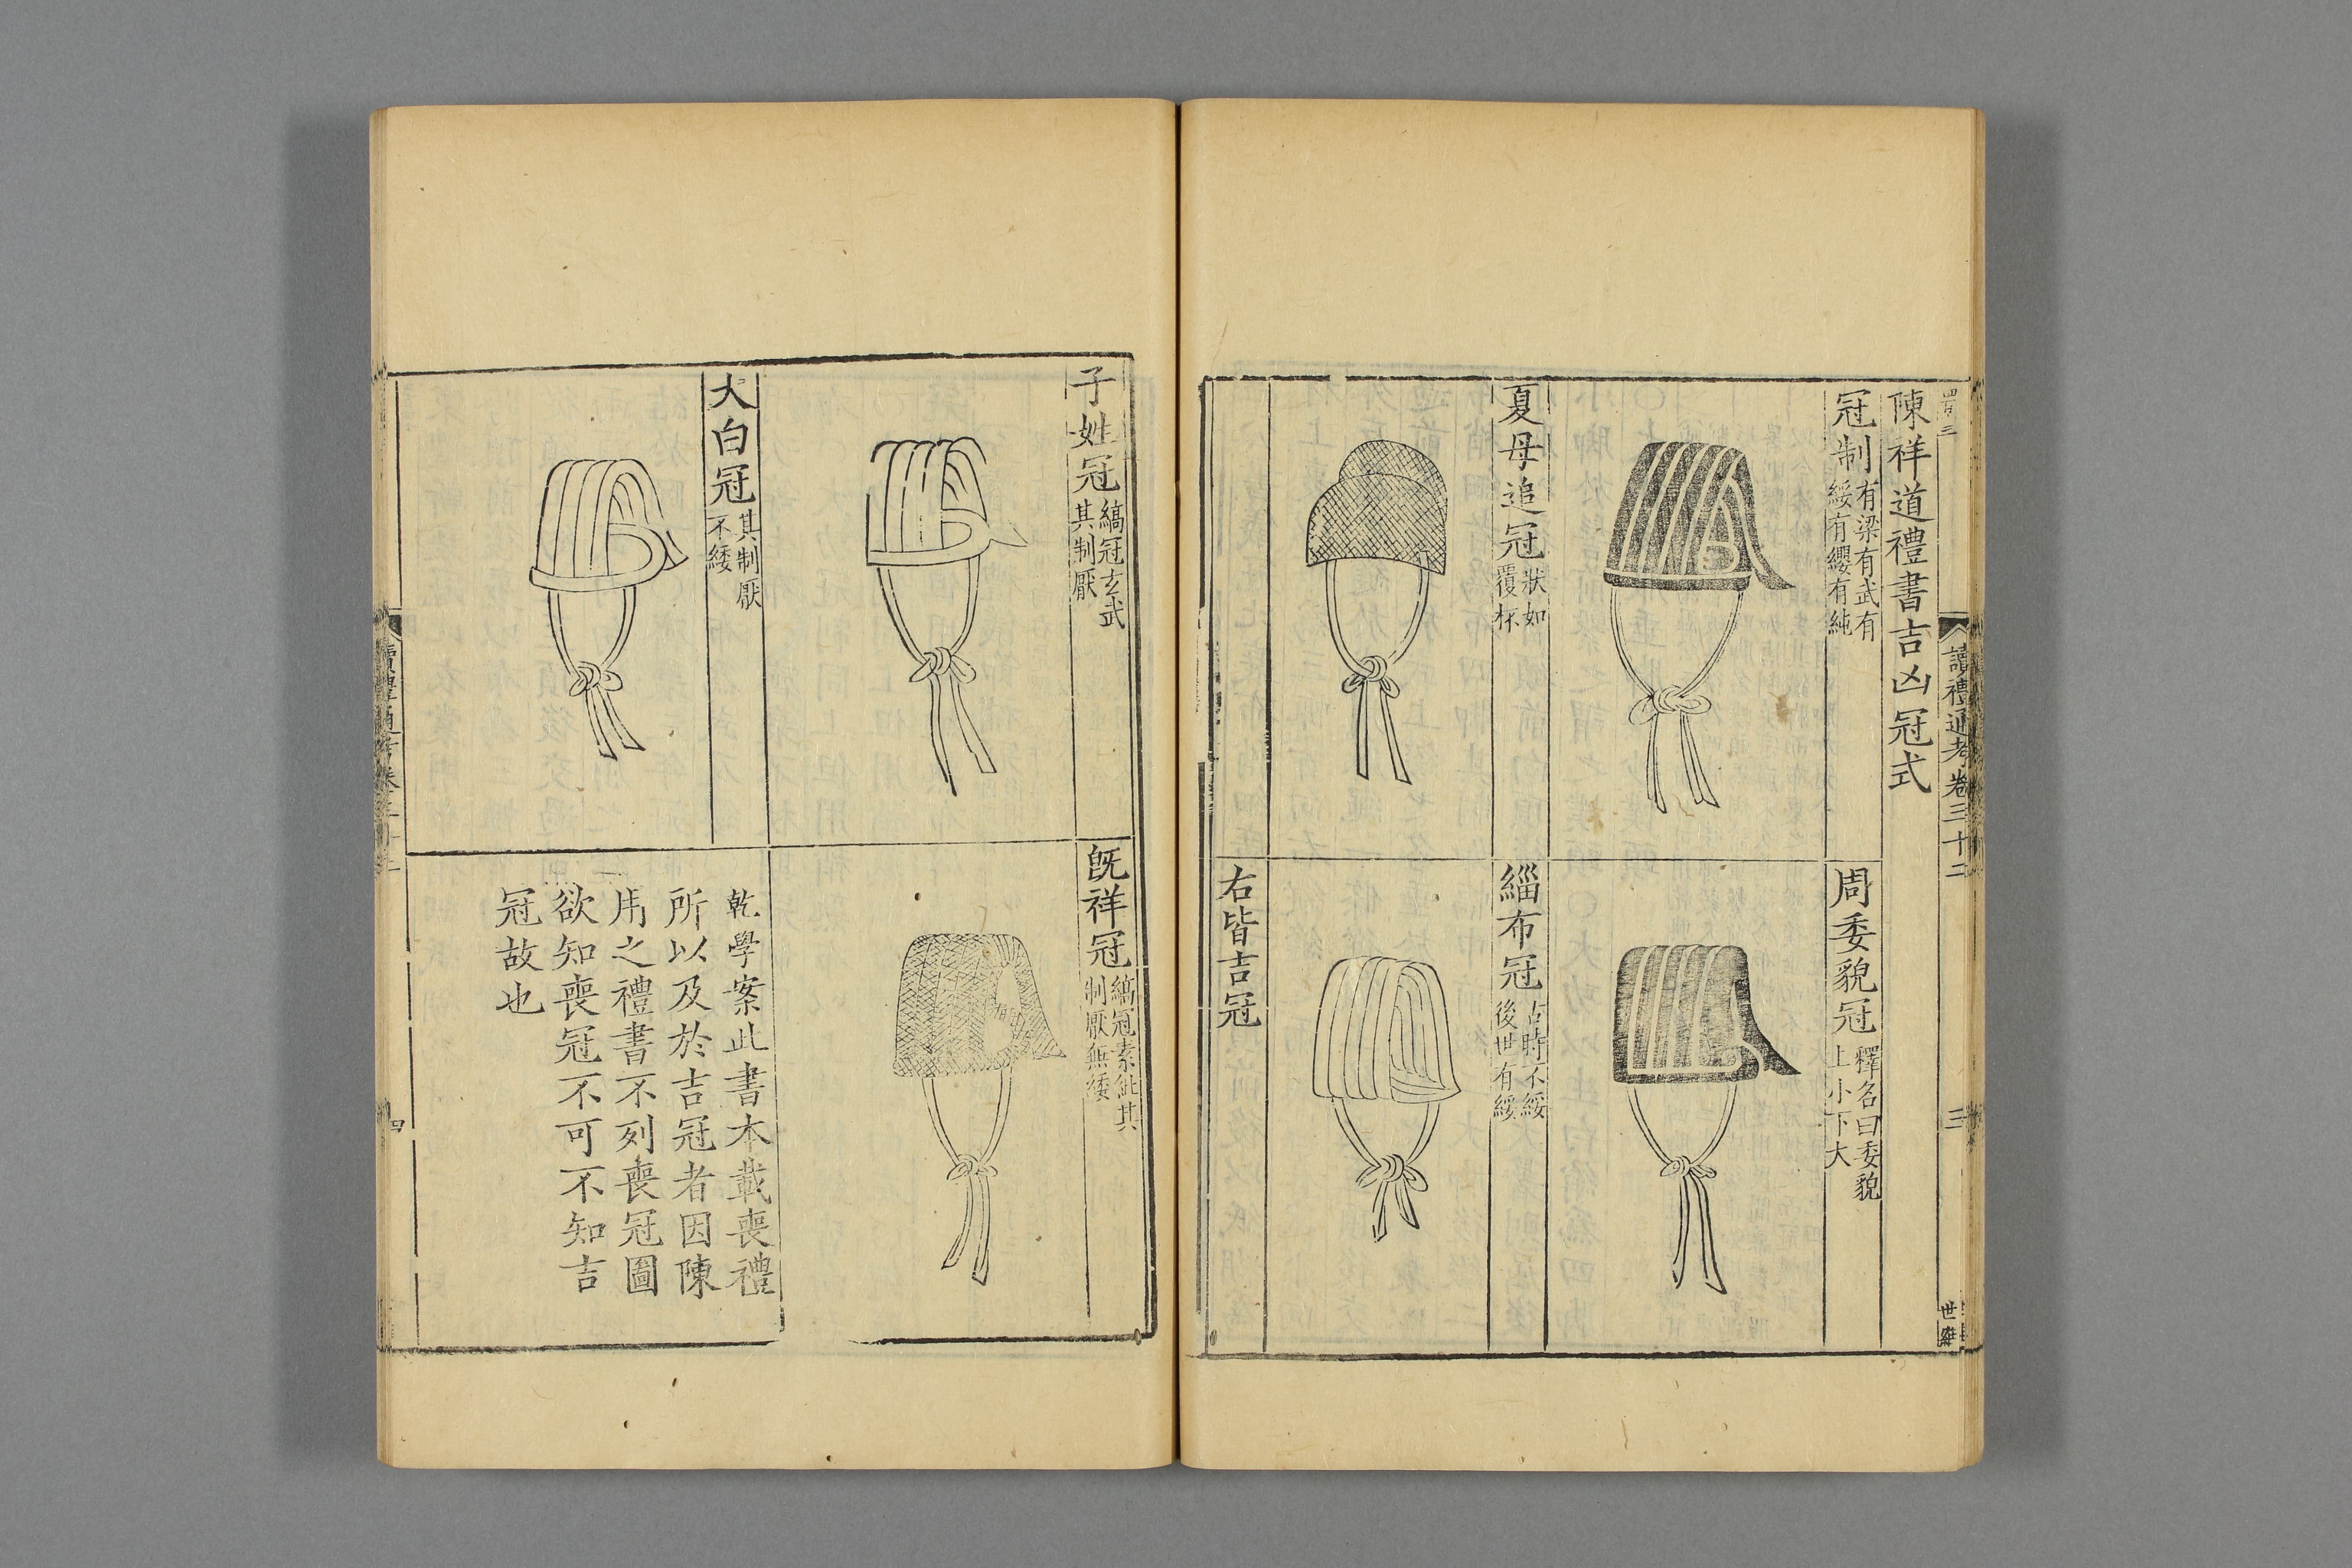 讀禮通考卷三十二
三
陳祥道禮書吉凶冠式
冠制
有梁有武有
綏有纓有純
周委貌冠
釋名曰委貌
上小下大
夏母追冠
狀如
覆杯
緇布冠
古時不綏
後世有綏
右皆吉冠
子姓冠
縞冠玄武
其制厭
既祥冠
縞冠素紕其
制厭無緌
大白冠
其制厭
不緌
乾學案此書本載喪禮
所以及於吉冠者因陳
用之禮書不列喪冠圖
欲知喪冠不可不知吉
冠故也
讀禮通考卷三十二
四